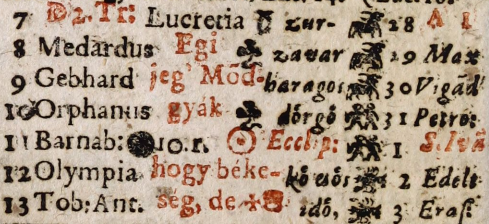 7 D 2. Tr: Lucretia zur- 28 A 1
8 Medardus Egi ♣ zavar 29 Max
9 Gebhard jeg' Mőd- haragos 30 Vigad
10 Orphanus gyák ♣ dőrgő 31 Petro:
11 Barnab: 10. r. ☉ Eccl:p: 1 S. Ivá
12 Olympia hogy béke- kő eső 2 Edelt
13 Tob: Ant. ség, de idő, 3 Eras: